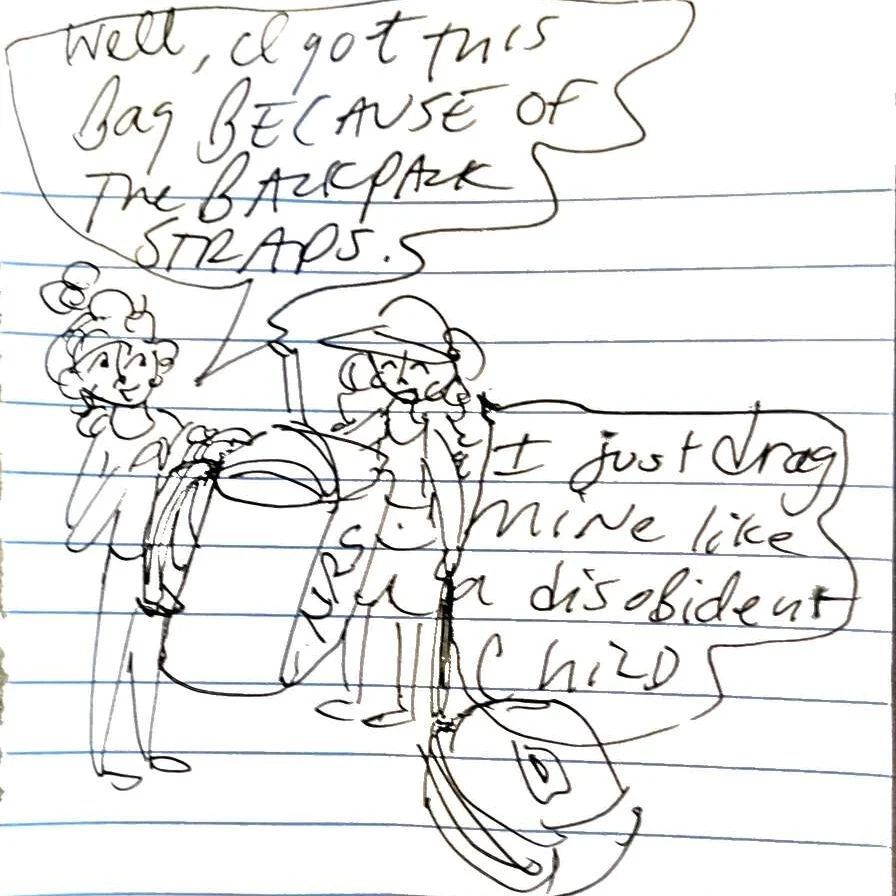 Well, I got this
Bag BECAUSE OF
THE BACKPACK
STRAPS.
I just drag
MINE like
a disobident
CHILD